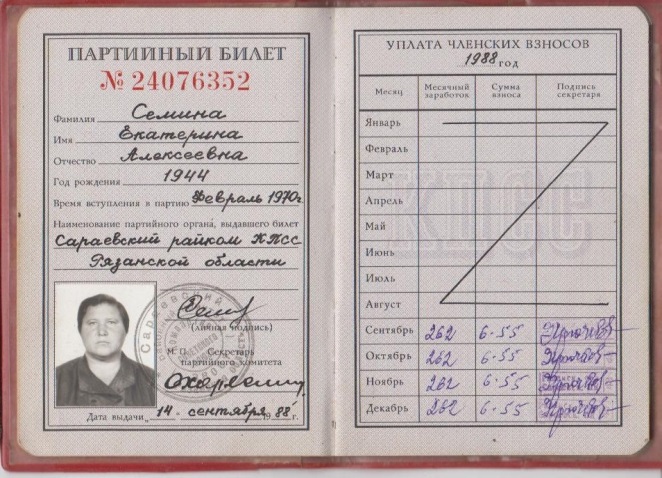 ПАРТИЙНЫЙ БИЛЕТ
№ 24076352
Фамилия Семина
Имя Екатерина
Отчество Алексеевна
Год рождения 1944
Время вступления в партию Февраль 1970г.
Наименование партийного органа, выдавшего билет
Сараевский райком КПСС
Рязанской области
(личная подпись)
М. П. Секретарь
партийного комитета
Дата выдачи „14“ сентября 1988 г.
УПЛАТА ЧЛЕНСКИХ ВЗНОСОВ
1988 год
Месяц Месячный заработок Сумма взноса Подпись секретаря
Январь
Февраль
Март
Апрель
КПСС
Май
Июнь
Июль
Август
Сентябрь 262 6-55
Октябрь 262 6-55
Ноябрь 262 6-55
Декабрь 262 6-55